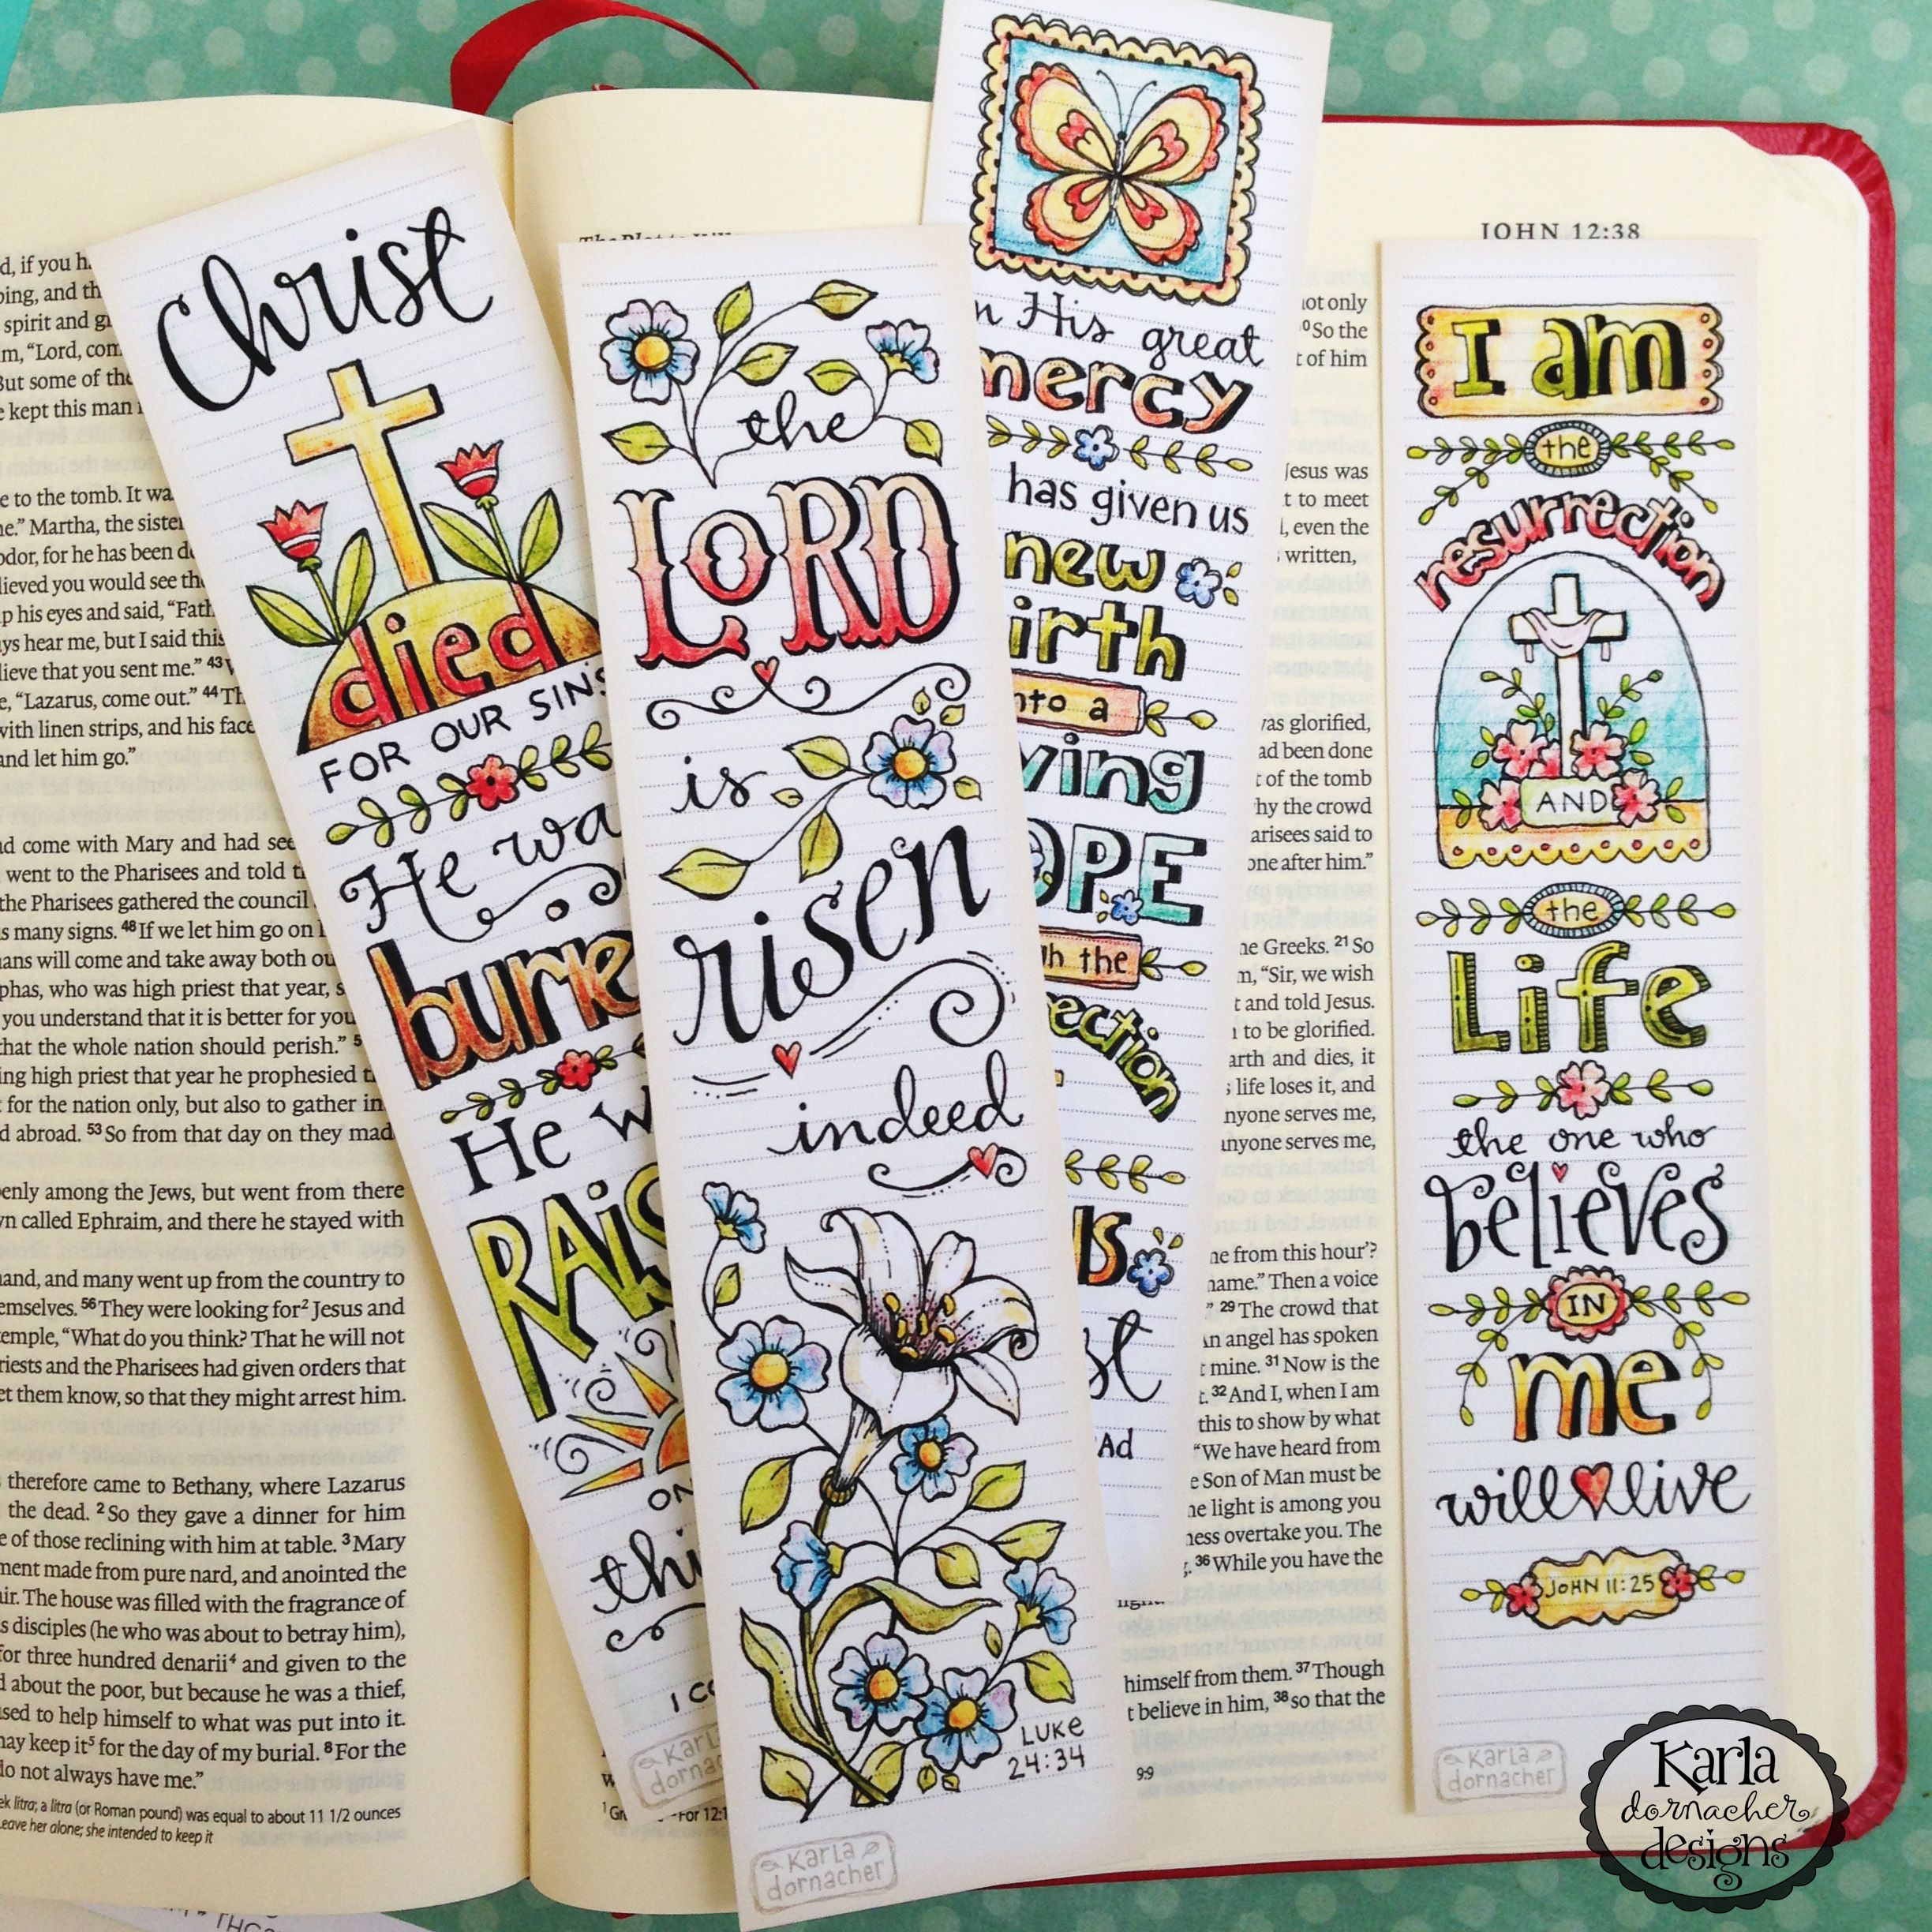 Christ
died
FOR OUR SINS
He wa
burie
He w
RAIS
ON
thi
I CO
Karla
dornac
the
LORD
is
risen
indeed
LUKE
24:34
Karla
dornacher
n His great
mercy
has given us
new
irth
nto a
ving
OPE
gh the
ection
us
st
Ad
I am
the
resurrection
AND
the
Life
the one who
believes
IN
me
will live
JOHN 11:25
Karla
dornacher
Karla
dornacher
designs
d, if you h
ping, and th
spirit and gr
m, “Lord, com
But some of the
e kept this man
e to the tomb. It wa
ne.” Martha, the sister
odor, for he has been d
lieved you would see th
p his eyes and said, “Fath
ys hear me, but I said this
lieve that you sent me.” 43
e, “Lazarus, come out.” 44 Th
with linen strips, and his face
and let him go.”
d come with Mary and had see
went to the Pharisees and told t
the Pharisees gathered the council
s many signs. 48 If we let him go on l
ans will come and take away both ou
phas, who was high priest that year, s
you understand that it is better for you
that the whole nation should perish.” 5
ing high priest that year he prophesied t
t for the nation only, but also to gather in
d abroad. 53 So from that day on they mad
enly among the Jews, but went from there
n called Ephraim, and there he stayed with
and, and many went up from the country to
emselves. 56 They were looking for2 Jesus and
emple, “What do you think? That he will not
riests and the Pharisees had given orders that
et them know, so that they might arrest him.
therefore came to Bethany, where Lazarus
the dead. 2 So they gave a dinner for him
e of those reclining with him at table. 3 Mary
ment made from pure nard, and anointed the
ir. The house was filled with the fragrance of
s disciples (he who was about to betray him),
for three hundred denarii4 and given to the
d about the poor, but because he was a thief,
used to help himself to what was put into it.
nay keep it5 for the day of my burial. 8 For the
do not always have me.”
ek litra; a litra (or Roman pound) was equal to about 11 1/2 ounces
Leave her alone; she intended to keep it
JOHN 12:38
not only
So the
t of him
Jesus was
t to meet
l, even the
written,
was glorified,
ad been done
t of the tomb
hy the crowd
arisees said to
one after him.”
he Greeks. 21 So
m, “Sir, we wish
t and told Jesus.
to be glorified.
arth and dies, it
s life loses it, and
nyone serves me,
nyone serves me,
me from this hour’?
name.” Then a voice
” 29 The crowd that
An angel has spoken
t mine. 31 Now is the
t. 32 And I, when I am
this to show by what
“We have heard from
e Son of Man must be
he light is among you
ness overtake you. The
36 While you have the
himself from them. 37 Though
t believe in him, 38 so that the
9:9
For 12:1